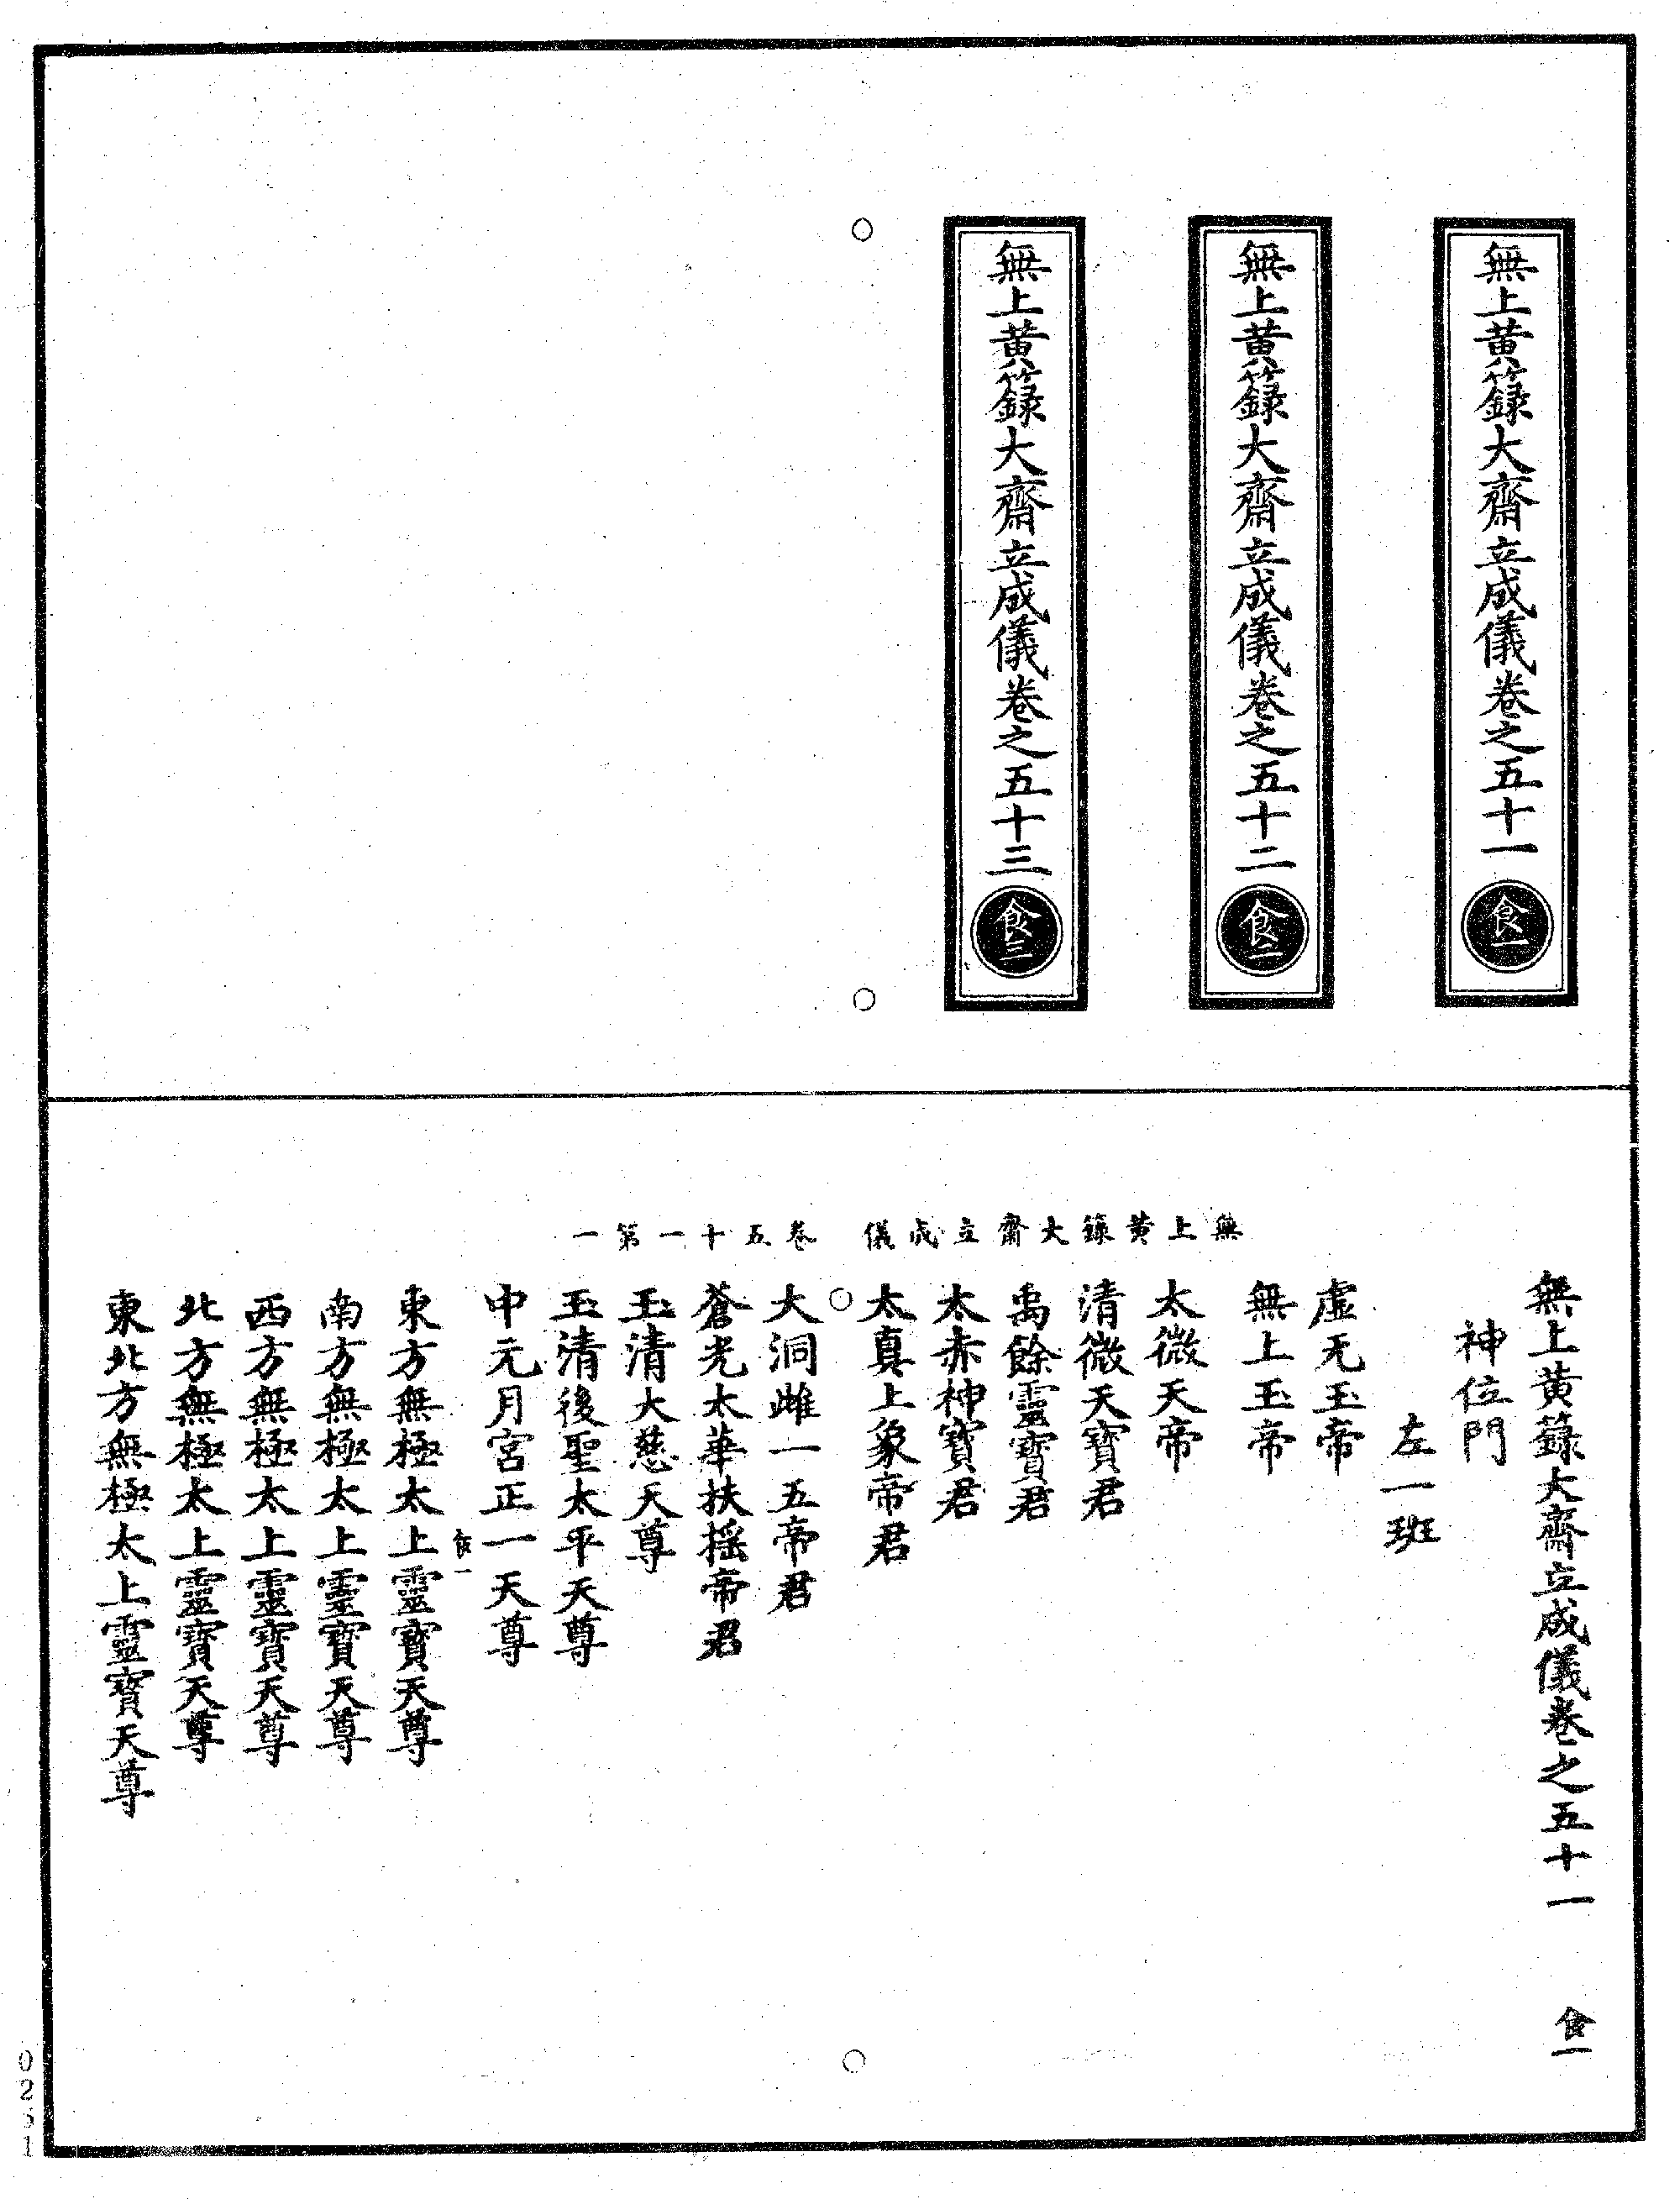 無上黄籙大齋立成儀卷之五十一 食一
無上黄籙大齋立成儀卷之五十二 食二
無上黄籙大齋立成儀卷之五十三 食三
無上黄籙大齋立成儀 卷五十一第一
無上黄籙大齋立成儀卷之五十一 食一
神位門
左一班
虛无玉帝
無上玉帝
太微天帝
清微天寶君
禹餘靈寶君
太赤神寶君
太真上象帝君
大洞雌一五帝君
蒼光太華扶摇帝君
玉清大慈天尊
玉清後聖太平天尊
中元月宮正一天尊
食一
東方無極太上靈寶天尊
南方無極太上靈寶天尊
西方無極太上靈寶天尊
北方無極太上靈寶天尊
東北方無極太上靈寶天尊